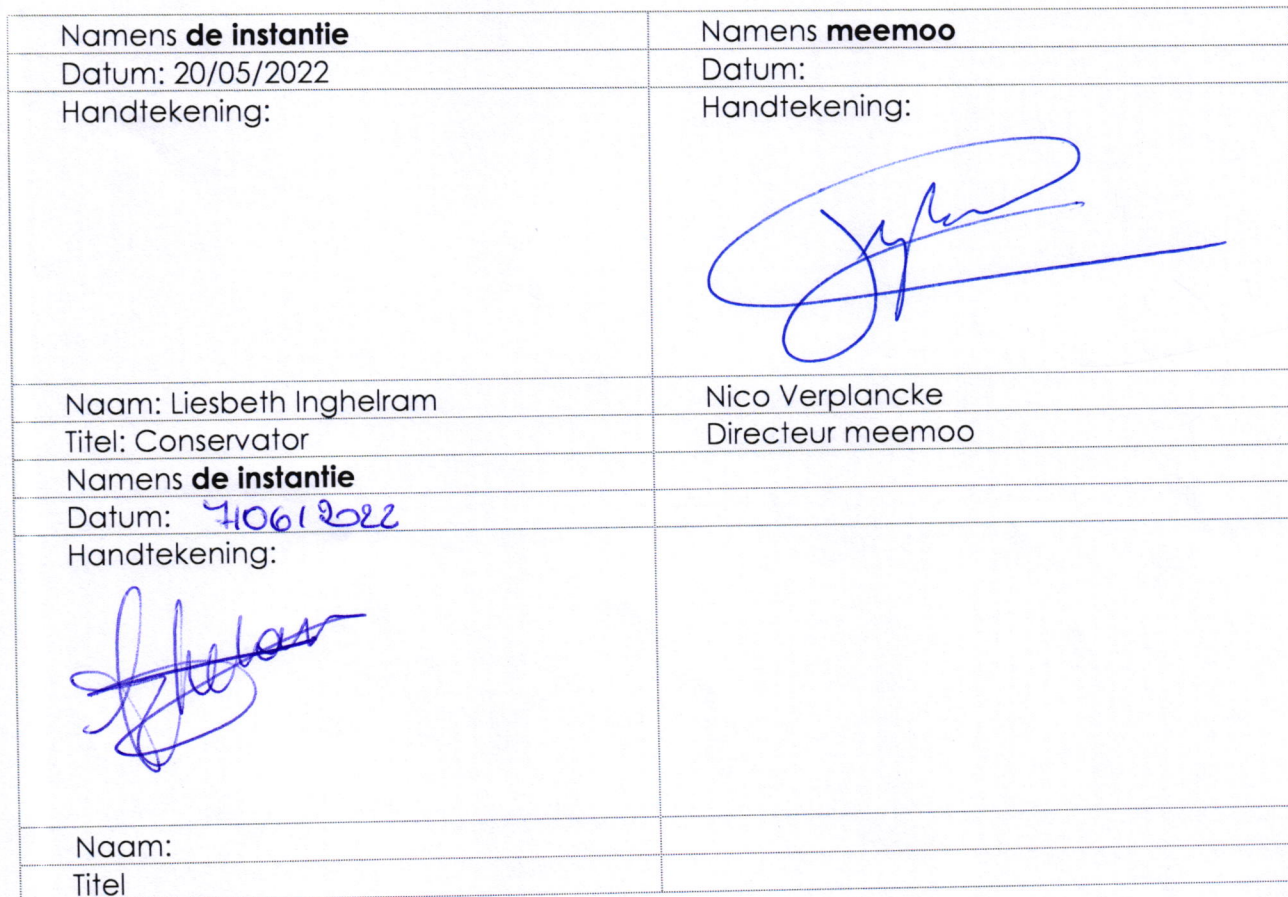 Namens de instantie
Namens meemoo
Datum: 20/05/2022
Datum:
Handtekening:
Handtekening:
Naam: Liesbeth Inghelram
Nico Verplancke
Titel: Conservator
Directeur meemoo
Namens de instantie
Datum: 7/06/2022
Handtekening:
Naam:
Titel